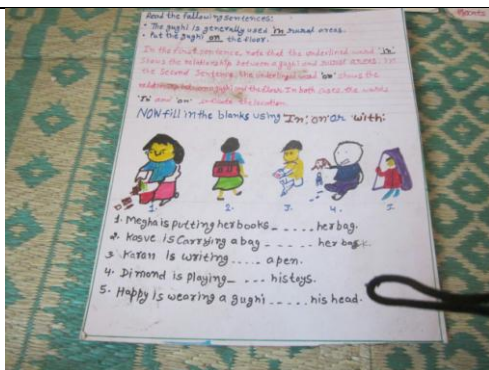 Read the following sentences:
• The gughi is generally used in rural areas.
• Put the gughi on the floor.
In the first sentence, note that the underlined word 'in'
shows the relationship between a gughi and rural areas. in
the second sentence, the underlined word 'on' shows the
relationship between gughi and the floor. In both cases the words
'in' and 'on' indicate the location.
NOW fill in the blanks using In; on or with:
1. 2. 3. 4. 5.
1. Megha is putting her books - - - - - her bag.
2. Kosve is Carrying a bag - - - - - her back.
3. Karan is writing .... a pen.
4. Dimond is playing - - - - his toys.
5. Happy is wearing a gughi - - - - - his head.